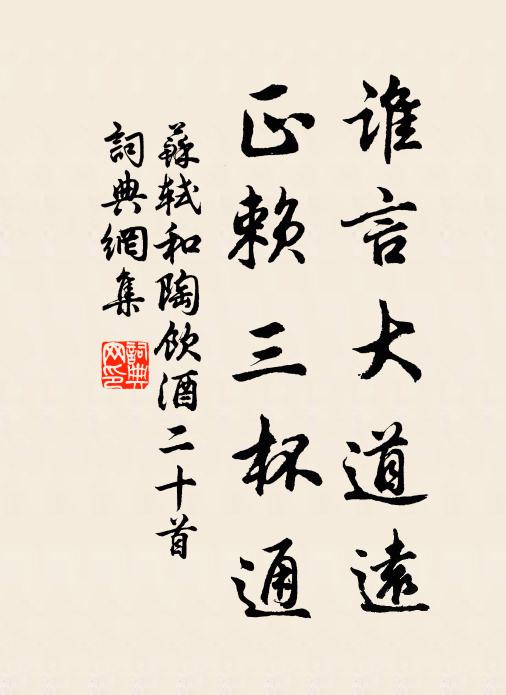 誰言大道遠
正賴三杯通
蘇軾和陶飲酒二十首
詞典網集
詞典
网印